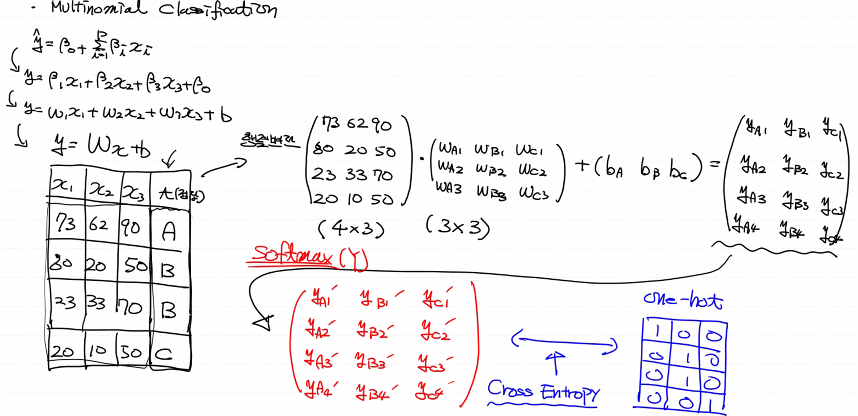 · Multinomial Classification
ŷ = β₀ + Σᵢ₌₁ᵖ βᵢxᵢ
y = β₁x₁ + β₂x₂ + β₃x₃ + β₀
y = w₁x₁ + w₂x₂ + w₃x₃ + b
y = Wx + b
x₁ x₂ x₃
73 62 90 A
80 20 50 B
23 33 70 B
20 10 50 C
73 62 90
80 20 50
23 33 70
20 10 50
(4×3)
·
wA1 wB1 wC1
wA2 wB2 wC2
wA3 wB3 wC3
(3×3)
+ (bA bB bC) =
yA1 yB1 yC1
yA2 yB2 yC2
yA3 yB3 yC3
yA4 yB4 yC4
Softmax (Y)
yA1′ yB1′ yC1′
yA2′ yB2′ yC2′
yA3′ yB3′ yC3′
yA4′ yB4′ yC4′
Cross Entropy
one-hot
1 0 0
0 1 0
0 1 0
0 0 1